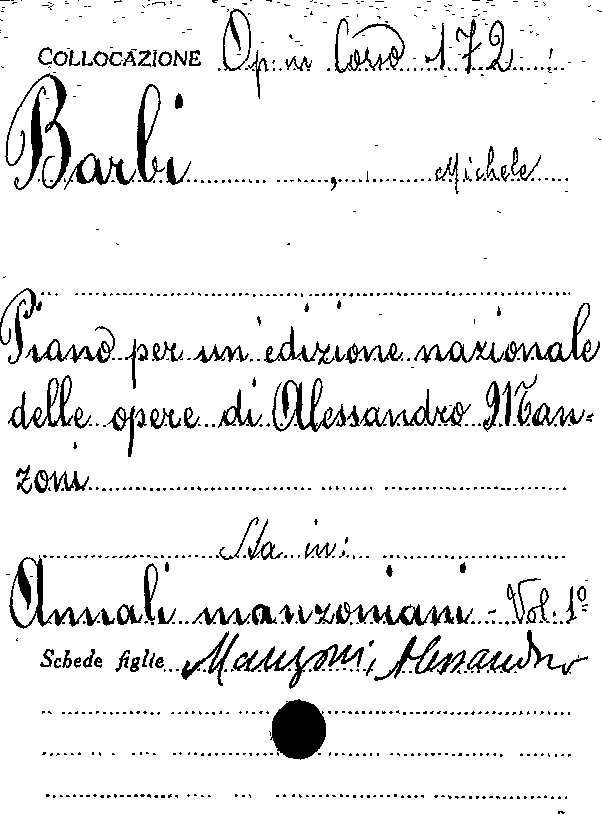 COLLOCAZIONE Op. in Corso 172
Barbi, Michele
Piano per un'edizione nazionale
delle opere di Alessandro Man-
zoni
Sta in:
Annali manzoniani - Vol. 1º
Schede figlie Manzoni, Alessandro